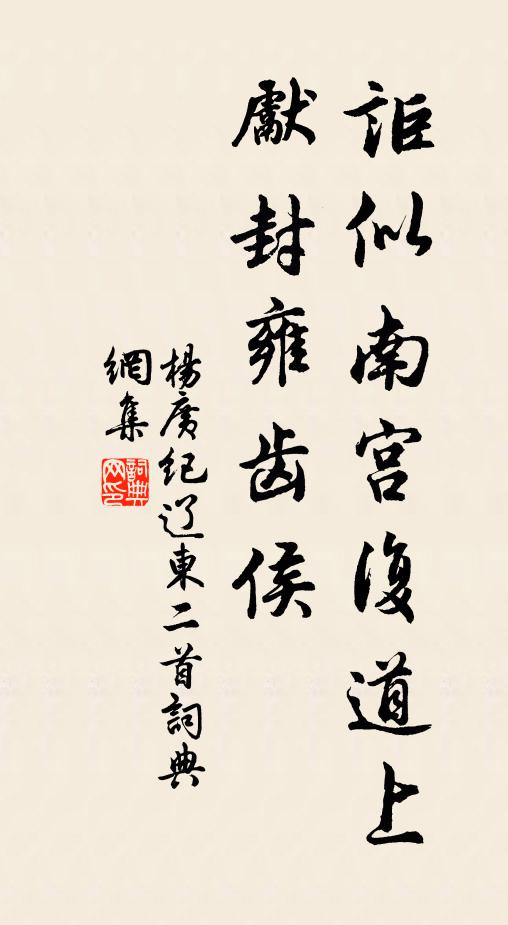 詎似南宫復道上
獻封雍齿侯
楊廣紀辽東二首詞典
網集
詞典
网印